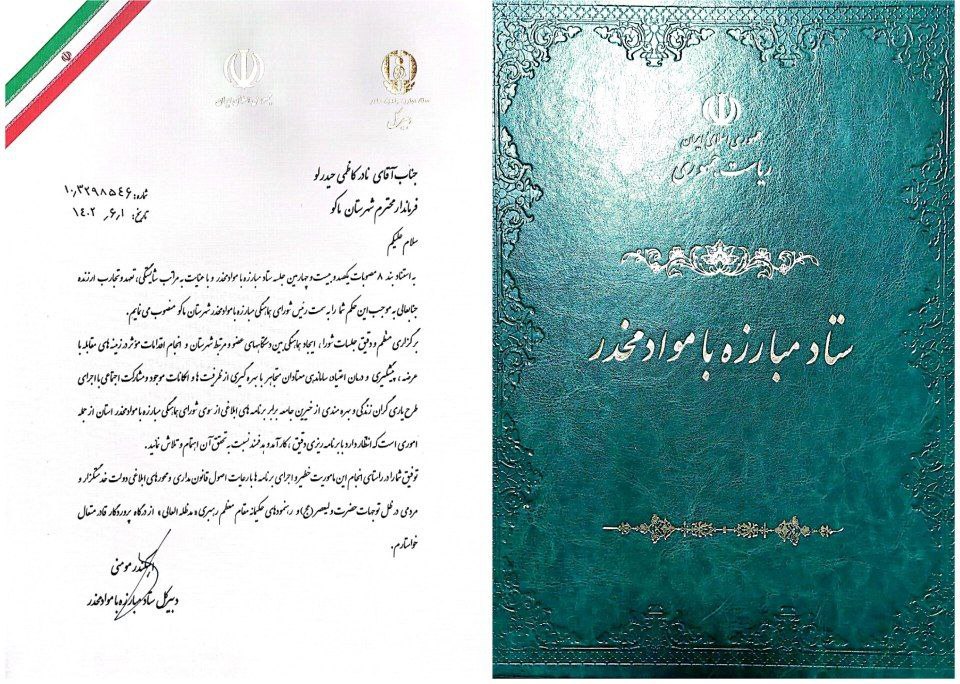 جمهوری اسلامی ایران
دبیرکل
جناب آقای نادر کاظمی حیدرلو
فرماندار محترم شهرستان ماکو
شماره: ۱۰٫۳۲۹۸۵۴۶
تاریخ: ۱۴۰۲٫۶٫۱
سلام علیکم
به استناد بند ۸ مصوبات یکصد و بیست و چهارمین جلسه ستاد مبارزه با مواد مخدر و با عنایت به مراتب شایستگی، تعهد و تجارب ارزنده
جنابعالی به موجب این حکم شما را به سمت رئیس شورای هماهنگی مبارزه با مواد مخدر شهرستان ماکو منصوب می نمایم.
برگزاری منظم و دقیق جلسات شورا، ایجاد هماهنگی بین دستگاههای عضو و مرتبط شهرستان و انجام اقدامات مؤثر در زمینه های مقابله با
عرضه، پیشگیری و درمان اعتیاد، ساماندهی معتادان متجاهر با بهره گیری از ظرفیت ها و امکانات موجود و مشارکت اجتماعی با اجرای
طرح یاری گران زندگی و بهره مندی از خیرین جامعه برابر برنامه های ابلاغی از سوی شورای هماهنگی مبارزه با مواد مخدر استان از جمله
اموری است که انتظار دارد با برنامه ریزی دقیق، کارآمد و هدفمند نسبت به تحقق آن اهتمام و تلاش نمائید.
توفیق شما را در راستای انجام این ماموریت خطیر و اجرای برنامه ها با رعایت اصول قانون مداری و محورهای ابلاغی دولت خدمتگزار و
مردمی در ظل توجهات حضرت ولیعصر (عج) و رهنمودهای حکیمانه مقام معظم رهبری «مدظله العالی»، از درگاه پروردگار قادر متعال
خواستارم.
اسکندر مومنی
دبیرکل ستاد مبارزه با مواد مخدر
جمهوری اسلامی ایران
ریاست جمهوری
ستاد مبارزه با مواد مخدر